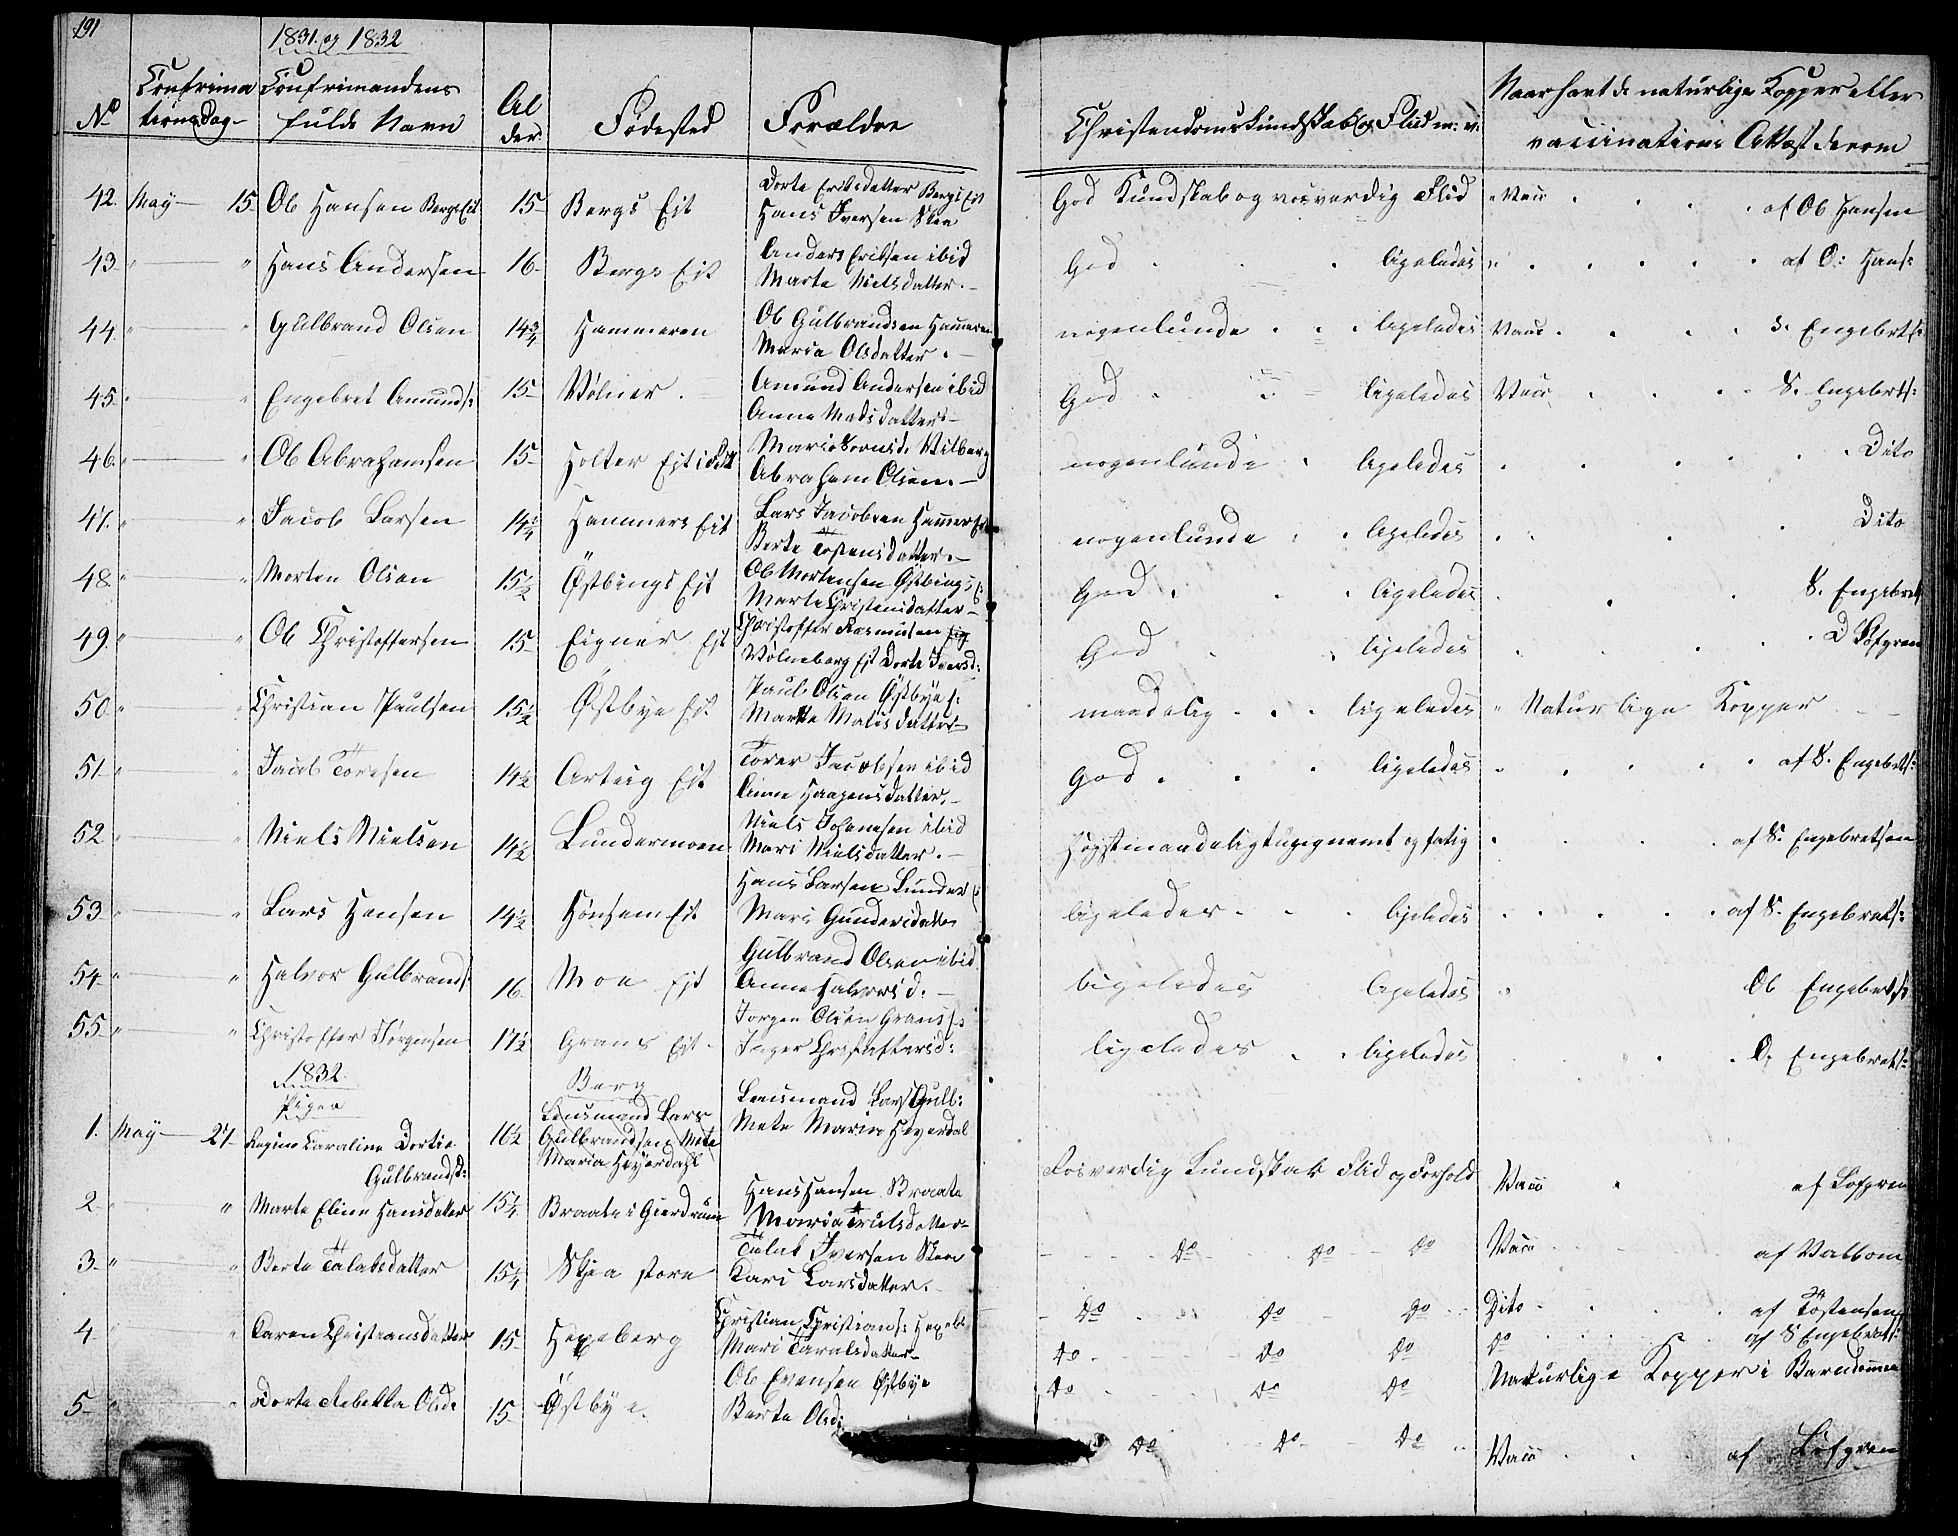 191
1831. og 1832
No
Confirmationsdag
Confirmandens fulde Navn
Alder
Fødested
Forældre
Christendomskundskab og Flid m: v:
Naar havt de naturlige Kopper eller vaccinations Attest derom
42. May 15 Ole Hansen Bergs Eje 15 Bergs Eje Dorte Eriksdatter Bergs Eje Hans Iversen Skea God Kundskab og rosverdig Flid Vacc af Ole Hansen
43 " " Hans Andersen 16 Bergs Eje Anders Eriksen ibid Marte Nielsdatter God ligeledes " af O: Hans:
44. " " Gulbrand Olsen 14 3/4 Hammeren Ole Gulbrandsen Hammeren Maria Olsdatter nogenlunde ligeledes Vacc S. Engebrets:
45. " " Engebret Amunds: 15 Vølner Amund Andersen ibid Anne Madsdatter God ligeledes Vacc S. Engebrets:
46. " " Ole Abrahamsen 15 Holter Eje Abraham Olsen nogenlunde ligeledes Dito
47. " " Jacob Larsen 14 1/4 Hammers Eje Lars Jacobsen Hammers Eje Berte Tostensdatter nogenlunde ligeledes Dito
48. " " Morten Olsen 15 1/2 Østbings Eje Ole Mortensen Østbings E: Marte Christensdatter God ligeledes S. Engebrets
49. " " Ole Christoffersen 15 Eigner Eje Christoffer Rasmusen Vølneberg Eje Dorte Iversd: God ligeledes Løfgren
50 " " Christian Paulsen 15 1/2 Østbye Eje Paul Olsen Østbye E: Marte Madsdatter maadelig ligeledes " Naturlige Kopper
51. " " Jacob Toresen 14 1/2 Arteig Eje Torer Jacobsen ibid Anne Haagensdatter God ligeledes af S. Engebrets:
52 " " Niels Nielsen 14 1/2 Lundermoen Niels Johannesen ibid Mari Nielsdatter Høystmaadelig tungnemt og fatig af S. Engebretsen
53 " " Lars Hansen 14 1/2 Hønsem Eje Hans Larsen Lunder E: Mari Gundersdatter ligeledes ligeledes af S. Engebrets:
54 " " Halvor Gulbrands: 16 Moe Eje Gulbrand Olsen ibid Anne Halvorsd: ligeledes ligeledes Ole Engebrets:
55 " " Christoffer Jørgensen 17 1/2 Grans Eje Jorgen Olsen Grans E: Inger Christoffersd: ligeledes ligeledes O. Engebrets:
1832.
Piger
1. May 27 Regine Caroline Dortie Gulbrandsd: 16 1/2 Berg Lensmand Lars Gulbrandsen Mete Maria Heyerdahl Lensmand Lars Gulb: Mete Maria Heyerdal Rosverdig Kundskab Flid og Forhold Vacc af Løfgren
2. " " Marte Eline Hansdatter 15 1/4 Braate i Gierdrum Hans Hansen Braate Maria Trulsdatter Do Do Do Vacc af Valbom
3. " " Berte Talaksdatter 15 1/4 Skea store Talak Iversen Skea Kari Larsdatter Do Do Do Dito af Tostensen
4 " " Caren Christiansdatter 15 Hexeberg Christian Christians: Hexeb: Mari Taralsdatter Do Do Do Do af S Engebrets:
5 " " Dorte Rebekka Olsd: 15 Østbye Ole Evensen Østbye Berte Olsd: Do Do Do Naturlige Kopper i Barndommen
Do Do Do Vacc af Løfgren